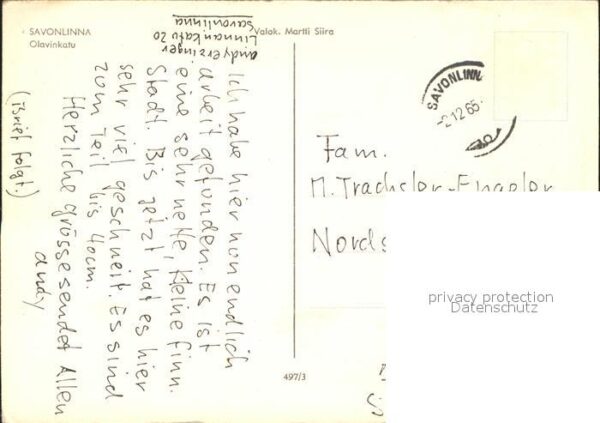 SAVONLINNA
Olavinkatu
Valok. Martti Siira
andy erzinger
Linnankatu 20
Savonlinna
Ich habe hier nun endlich
arbeit gefunden. Es ist
eine sehr nette, kleine finn.
Stadt. Bis jetzt hat es hier
sehr viel geschneit. Es sind
zum Teil bis 40cm.
Herzliche grüsse sendet Allen
andy
(brief folgt!)
SAVONLINN
-2.12.65.
Fam.
M. Trachsler-Engeler
Nords
497/3
privacy protection
Datenschutz